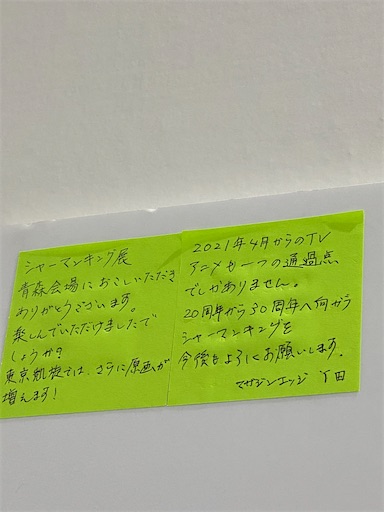 シャーマンキング展
青森会場におこしいただき
ありがとうございます。
楽しんでいただけましたで
しょうか?
東京凱旋では、さらに原画が
増えます!
2021年4月からのTV
アニメも一つの通過点
でしかありません。
20周年から30周年へ向かう
シャーマンキングを
今後もよろしくお願いします。
マガジンエッジ Y田